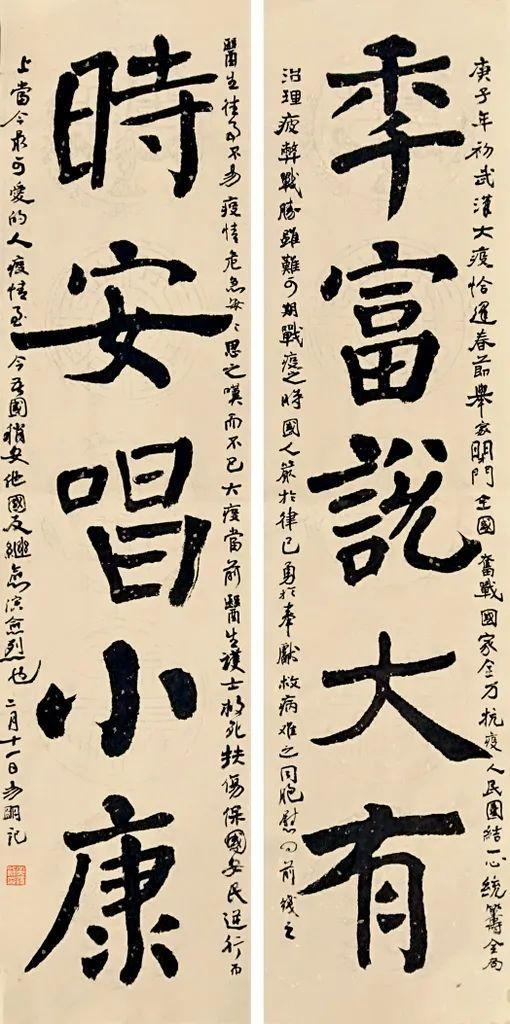 庚子年初武漢大疫恰逢春節舉家閉門全國奮戰國家全力抗疫人民團結一心統籌全局
秊富說大有
治理疫弊戰勝雖難可期戰疫之時國人嚴於律己勇於奉獻救病难之同胞慰问前线之
醫生不为疫情危急思之嘆而不已大疫當前醫生護士救死扶傷保國安民逆行而
時安唱小康
上當今最可愛的人疫情至今吾國稍安他國反繼愈演愈烈也二月十一日記